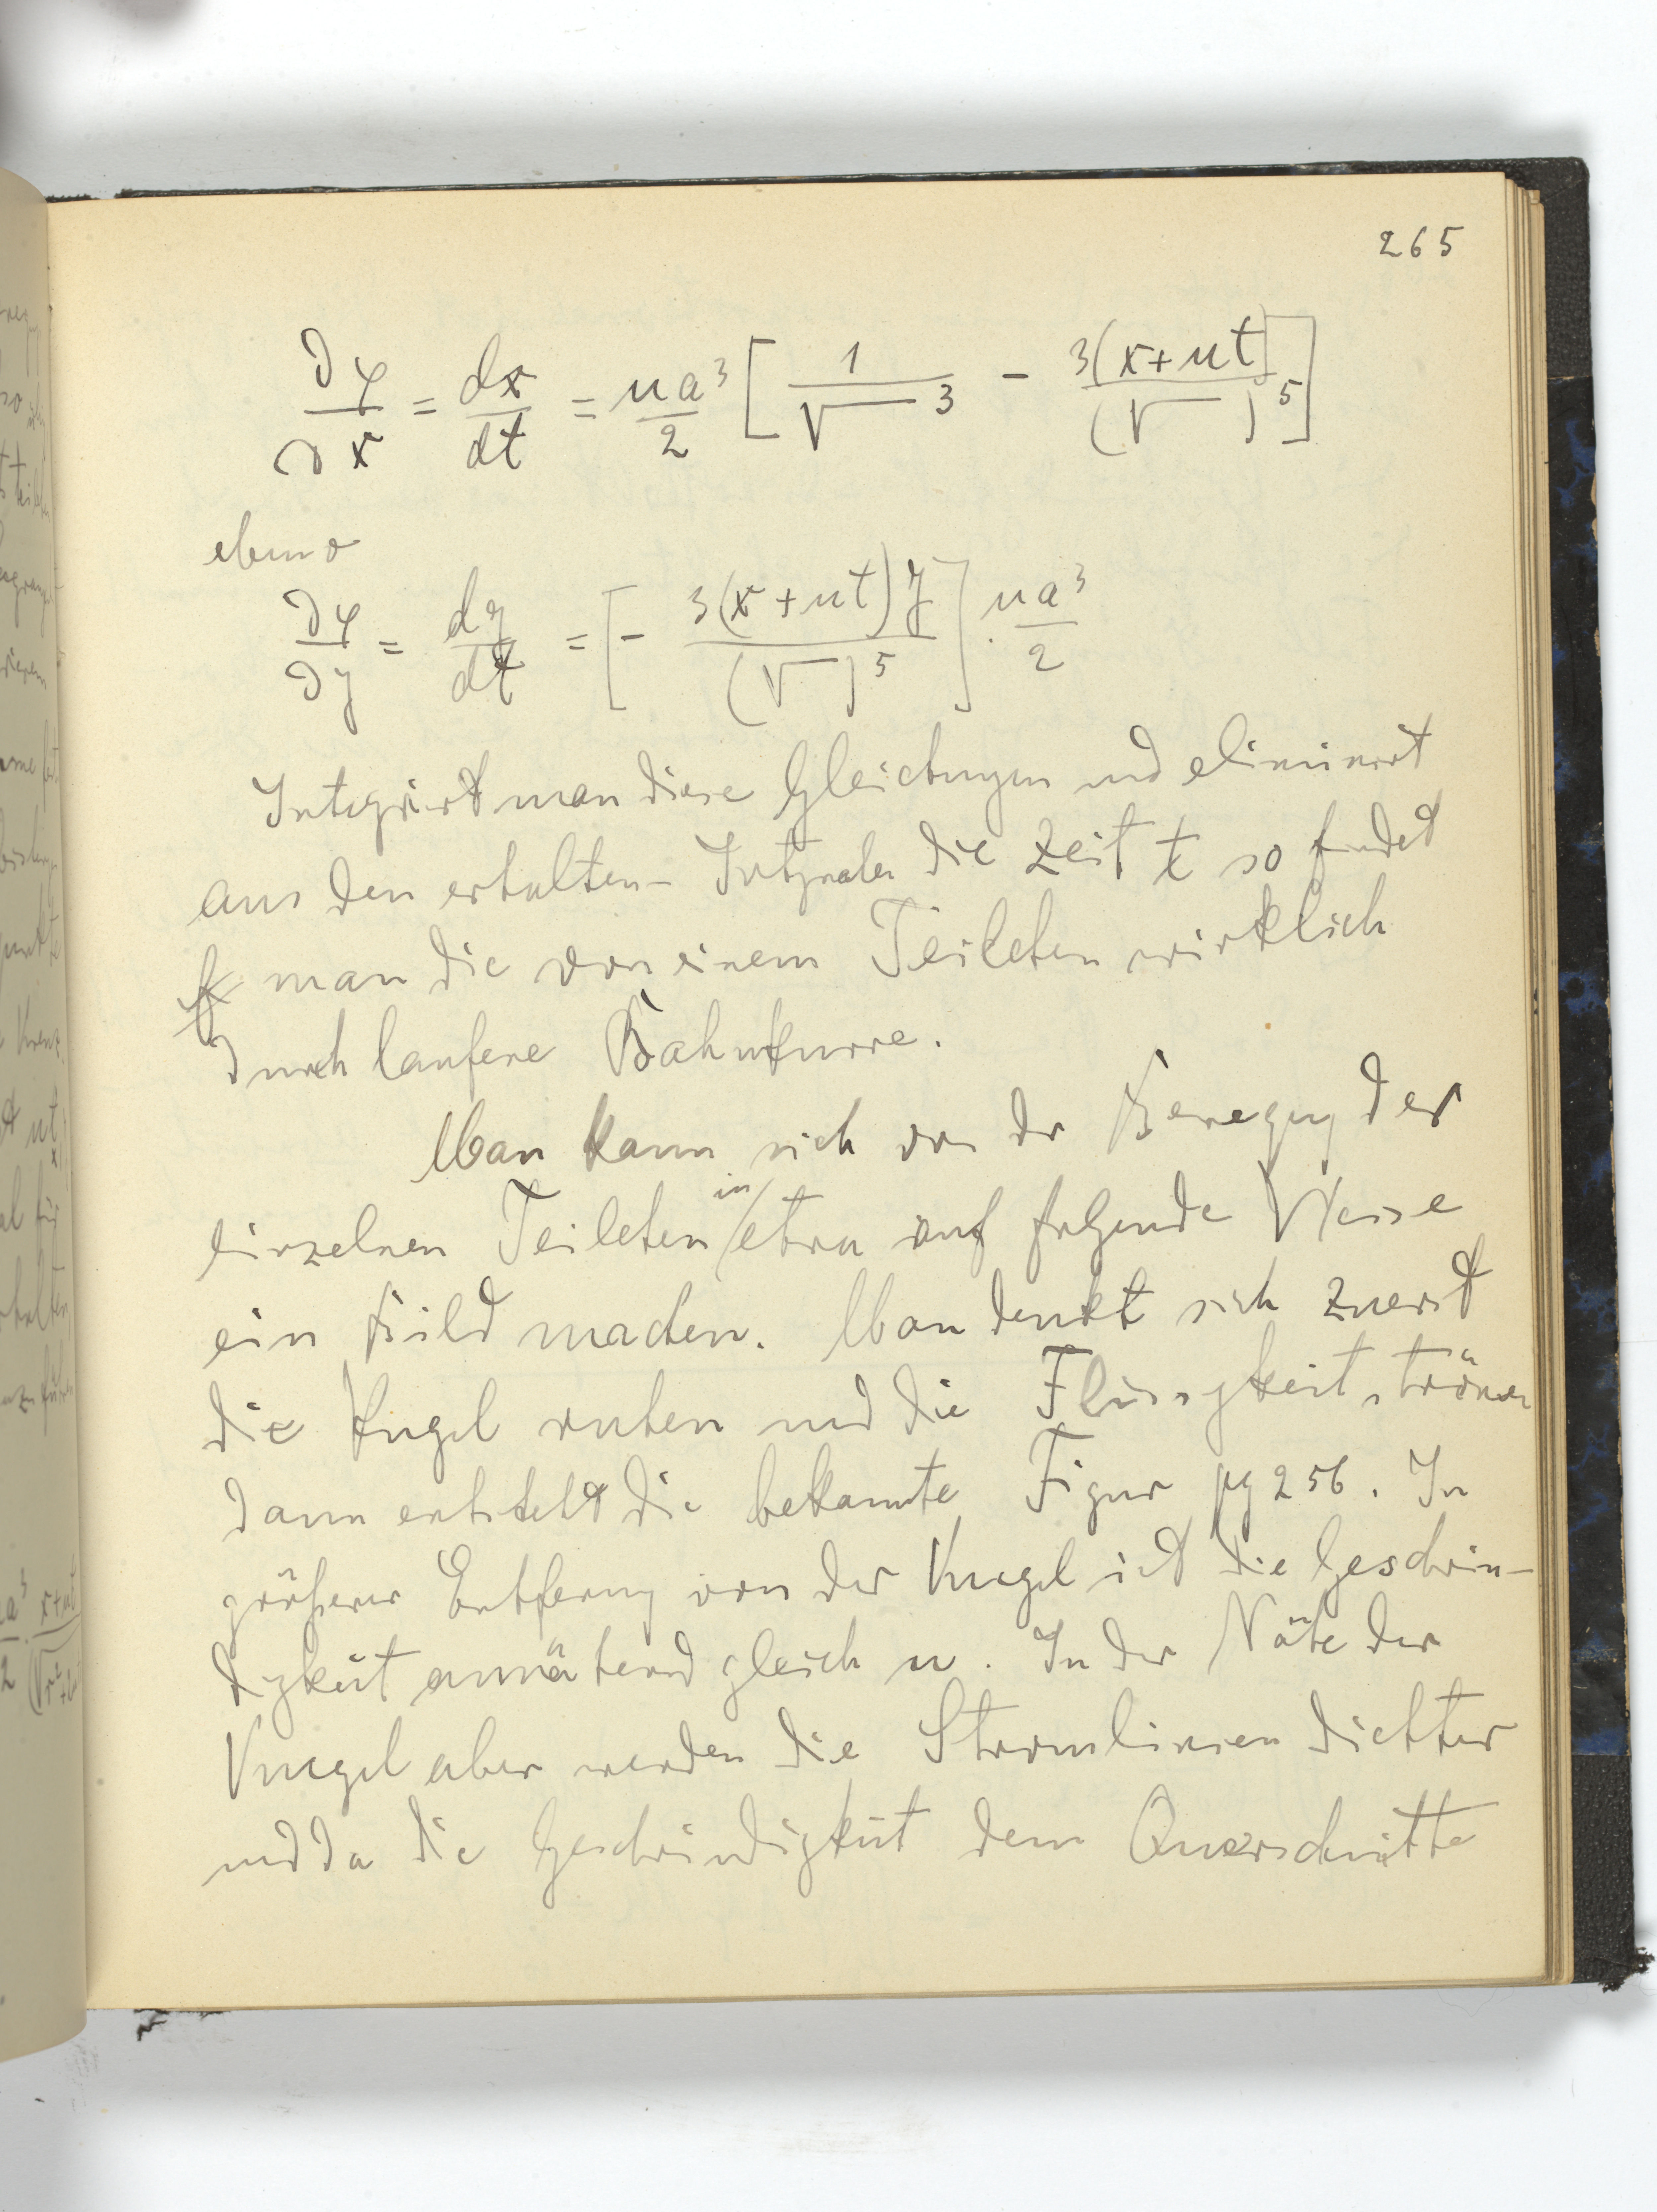 265
∂φ/∂x = dx/dt = ua³/2 [ 1/√‾‾³ − 3(x+ut)/(√‾‾)⁵ ]
ebenso
∂φ/∂y = dy/dt = [ − 3(x+ut)y/(√‾‾)⁵ ] · ua³/2
Integriert man diese Gleichungen und eliminiert
aus den erhalten- Integralen die Zeit t so findet
man die von einem Teilchen wirklich
durchlaufene Bahnkurve.
Man kann sich von der Bewegung der
in
einzelnen Teilchen etwa auf folgende Weise
ein Bild machen. Man denkt sich zuerst
die Kugel ruhen und die Flüssigkeit strömen
dann entsteht die bekannte Figur pg 256. In
größerer Entfernung von der Kugel ist die Geschwin-
digkeit annähernd gleich u. In der Nähe der
Kugel aber werden die Stromlinien dichter
und da die Geschwindigkeit dem Querschnitte